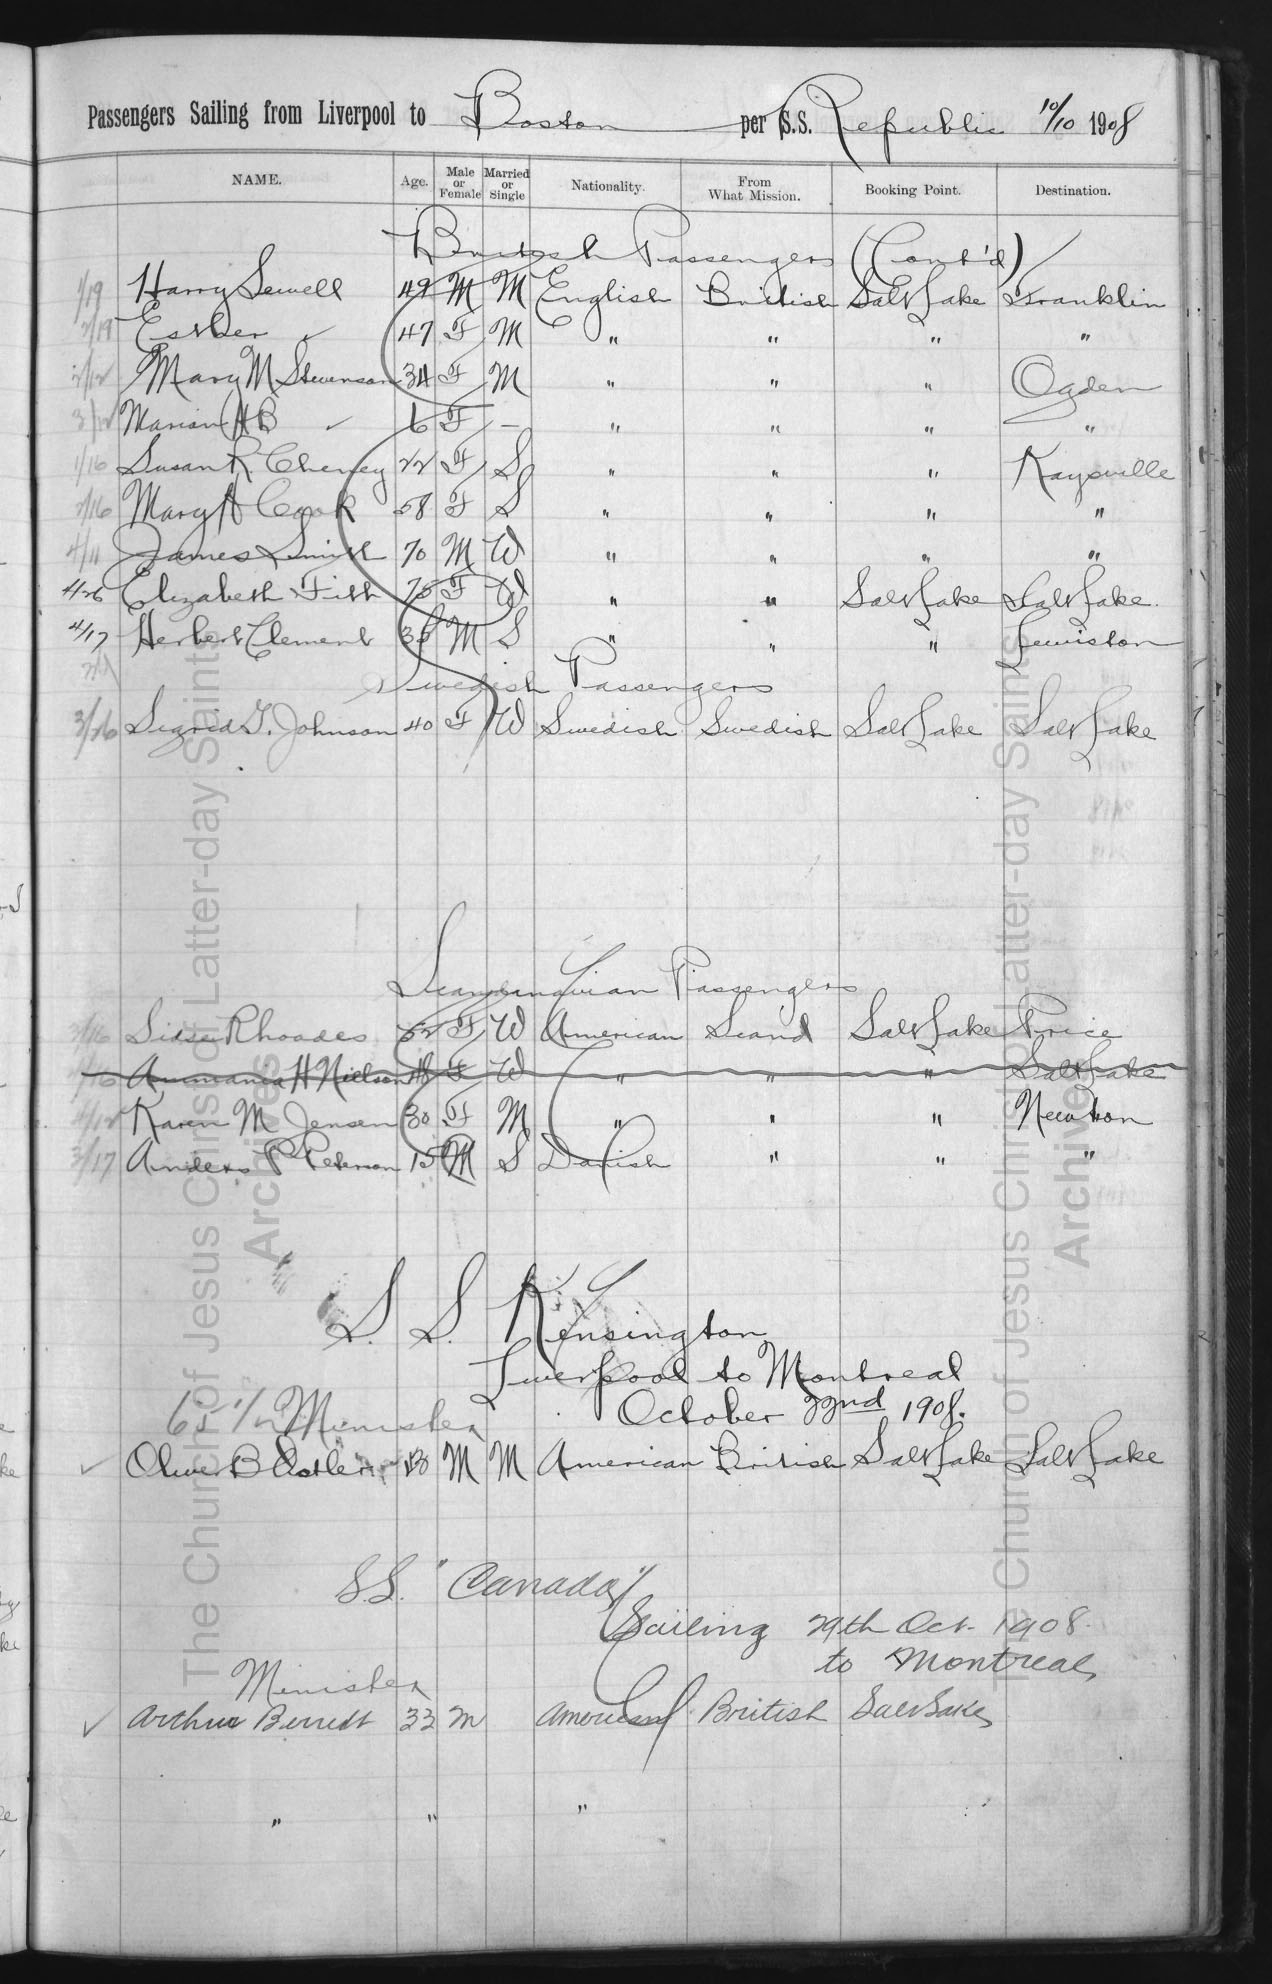 Passengers Sailing from Liverpool to Boston per S.S. Republic 10/10 1908
NAME. Age. Male or Female Married or Single Nationality. From What Mission. Booking Point. Destination.
British Passengers (Cont'd)
1/19 Harry Sewell 49 M M English British Salt Lake Franklin
2/19 Esther ✓ 47 F M " " " "
2/12 Mary M Stevenson 34 F M " " " Ogden
3/12 Marian H B ✓ 6 F - " " " "
1/16 Susan R. Cheney 22 F S " " " Kaysville
2/16 Mary A Cook 58 F S " " " "
4/11 James Smith 70 M W " " " "
4/26 Elizabeth Fish F W " " Salt Lake Salt Lake.
4/17 Herbert Clement M S " " " Lewiston
Swedish Passengers
3/26 Sigrid T. Johnson 40 F W Swedish Swedish Salt Lake Salt Lake
Scandinavian Passengers
Sidse Rhoades 52 F W American Scand Salt Lake Price
Ammania H Nielson F W " " " Salt Lake
4/12 Karen M Jensen 30 F M " " " Newton
3/17 Anders P Peterson 15 M S Danish " " "
S. S. Kensington
Liverpool to Montreal
October 22nd 1908.
65 1/2 Minister
✓ Oliver B Ostler M M American British Salt Lake Salt Lake
S.S. "Canada"
Sailing 29th Oct. 1908.
to Montreal
Minister
✓ Arthur Berrett 33 M American British Salt Lake
" " "
The Church of Jesus Christ of Latter-day Saints
Archives
The Church of Jesus Christ of Latter-day Saints
Archives